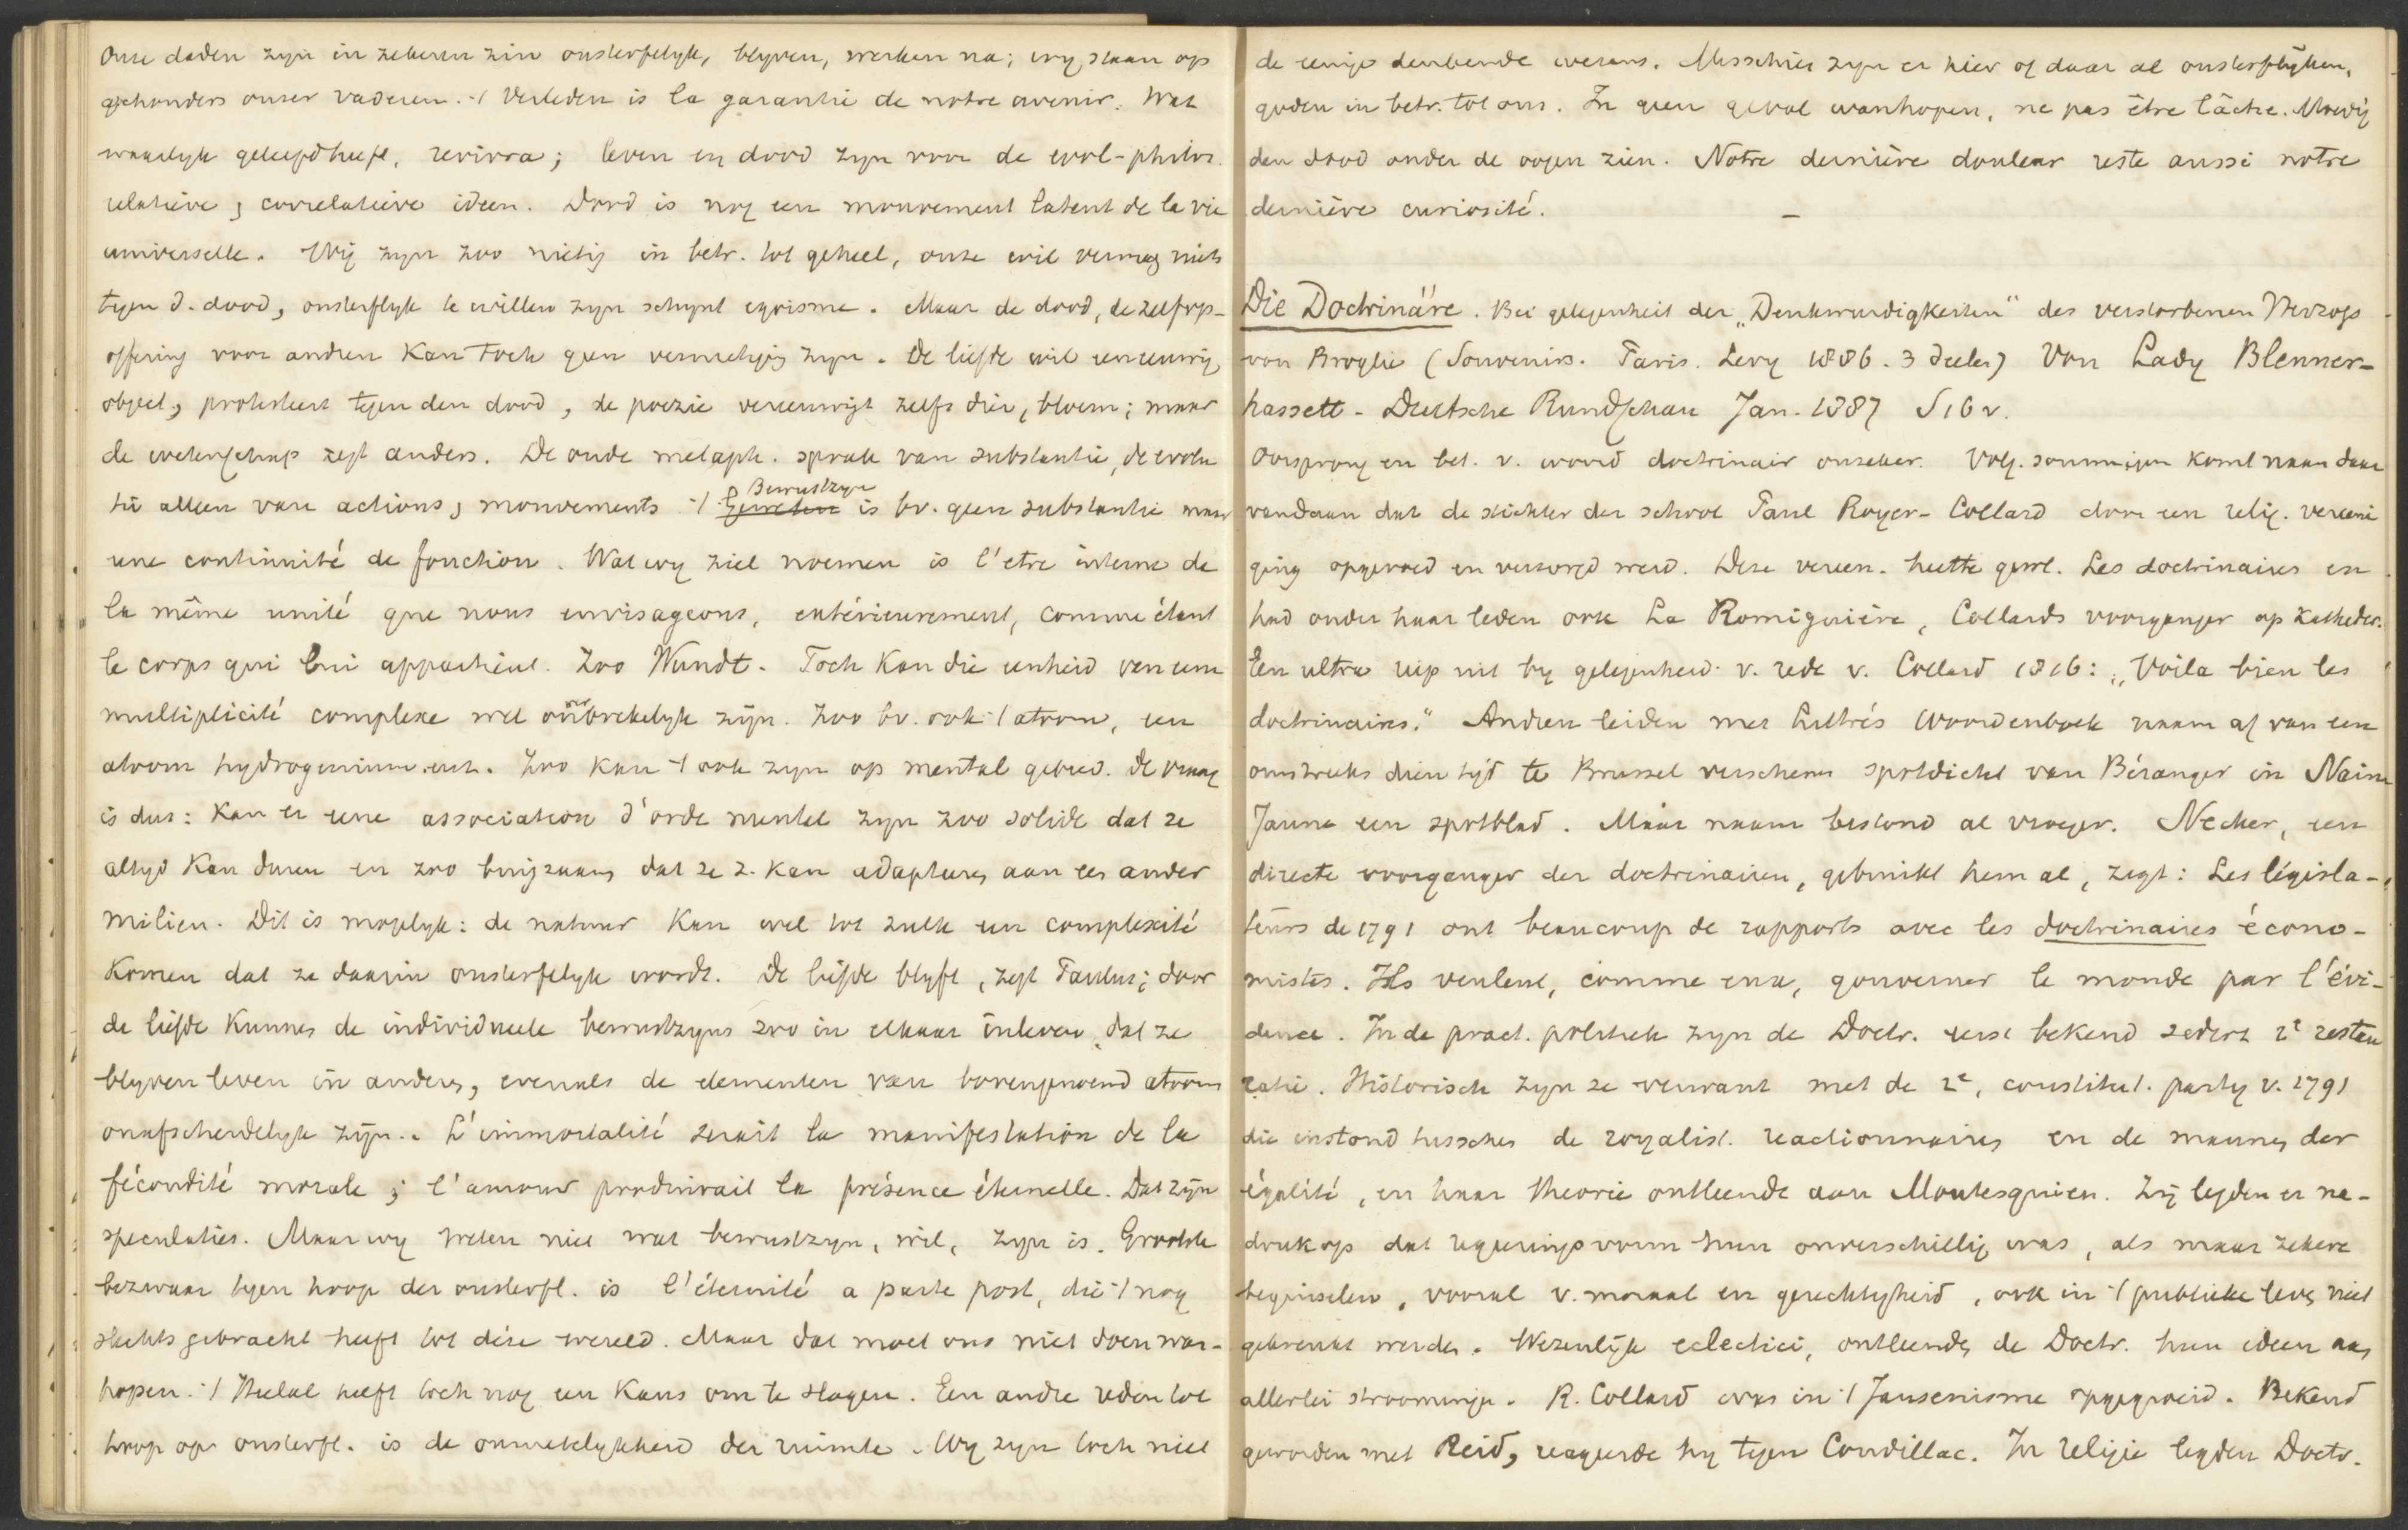 Onze daden zyn in zekeren zin onsterfelyk, blyven, werken na; wy staan op
schouders onzer vaderen. ·/ Verleden is la garantie de notre avenir. Wat
waarlyk geleefd heeft, revivra; leven en dood zyn voor de evol-philos.
relatieve, correlatieve ideen. Dood is nog een mouvement latent de la vie
universelle. Wij zyn zoo nietig in betr. tot geheel, onze wil vermag niets
tegen d. dood, onsterflyk te willen zyn schynt egoisme. Maar de dood, de zelfop-
offering voor andren kan toch geen vernietiging zyn. De liefde wil een eeuwig
object, protesteert tegen den dood, de poezie vereeuwigt zelfs dier, bloem; maar
de wetenschap zegt anders. De oude metaph. sprak van substantie, de evolu
tie alleen van actions, mouvements ·/ Bewustzyn is bv. geen substantie maar
une continuité de fonction. Wat wy ziel noemen is l'etre interne de
la même unité que nous envisageons, extérieurement, comme étant
le corps qui lui appartient. Zoo Wundt. Toch kan die eenheid van een
multiplicité complexe wel onverbrekelyk zijn. Zoo bv. ook ·/ atoom, een
atoom hydrogenium enz. Zoo kan ·/ ook zyn op mentaal gebied. De vraag
is dus: kan er eene association d'orde mental zyn zoo solide dat ze
altyd kan duren en zoo buigzaam dat ze z. kan adapteren aan een ander
milieu. Dit is mogelyk: de natuur kan wel tot zulk een complexité
komen dat ze daarin onsterfelyk wordt. De liefde blyft, zegt Paulus; door
de liefde kunnen de individueele bewustzyns zoo in elkaar inleven, dat ze
blyven leven in anderen, evenals de elementen van bovengenoemd atoom
onafscheidelyk zijn. L'immortalité serait la manifestation de la
fécondité morale; l'amour produirait la présence éternelle. Dat zijn
speculaties. Maar wy weten niet wat bewustzyn, wil, zyn is. Grootste
bezwaar tegen hoop der onsterfl. is l'éternité a parte post, die ·/ nog
slechts gebracht heeft tot déze wereld. Maar dat moet ons niet doen wan-
hopen. ·/ Heelal heeft toch nog een kans om te slagen. Een andre reden tot
hoop op onsterfl. is de onmetelykheid der ruimte. Wy zyn toch niet
de eenige denkende wezens. Misschien zyn er hier of daar al onsterflyken,
goden in betr. tot ons. In geen geval wanhopen, ne pas être lâche. Moedig
den dood onder de oogen zien. Notre dernière douleur reste aussi notre
dernière curiosité. —
Die Doctrinäre. Bei gelegenheit der „Denkwurdigkeiten" des verstorbenen Herzogs
von Broglie (Souvenirs. Paris. Levy 1886. 3 deelen) Von Lady Blenner-
hassett - Deutsche Rundschau Jan. 1887 S 16 v.
Oorsprong en bet. v. woord doctrinair onzeker. Volg. sommigen komt naam daar
vandaan dat de stichter der school Paul Royer-Collard door een relig. vereeni
ging opgevoed en verzorgd werd. Deze vereen. heette gew. Les doctrinaires en
had onder haar leden ook La Romiguière, Collards voorganger op katheder.
Een ultra riep uit by gelegenheid v. rede v. Collard 1816: „Voila bien les
doctrinaires." Andren leiden met Littrés Woordenboek naam af van een
omstreeks dien tijd te Brussel verschenen spotdicht van Béranger in Nain
Jaune een spotblad. Maar naam bestond al vroeger. Necker, een
directe voorganger der doctrinairen, gebruikt hem al, zegt: Les législa-
teurs de 1791 ont beaucoup de rapports avec les doctrinaires écono-
mistes. Ils veulent, comme eux, gouverner le monde par l'évi-
dence. In de pract. politiek zyn de Doctr. eerst bekend sedert 2e restau
ratie. Historisch zyn ze verwant met de 2e, constitut. party v. 1791
die instond tusschen de royalist. reactionnairen en de mannen der
égalité, en haar theorie ontleende aan Montesquieu. Zij legden er na-
druk op dat regeeringsvorm hun onverschillig was, als maar zekere
beginselen, vooral v. moraal en gerechtigheid, ook in ·/ publieke leven niet
gekrenkt werden. Wezenlijk eclectici, ontleenden de Doctr. hun ideen aan
allerlei stroomingen. R. Collard was in ·/ Jansenisme opgegroeid. Bekend
geworden met Reid, reageerde hy tegen Condillac. In religie legden Doctr.